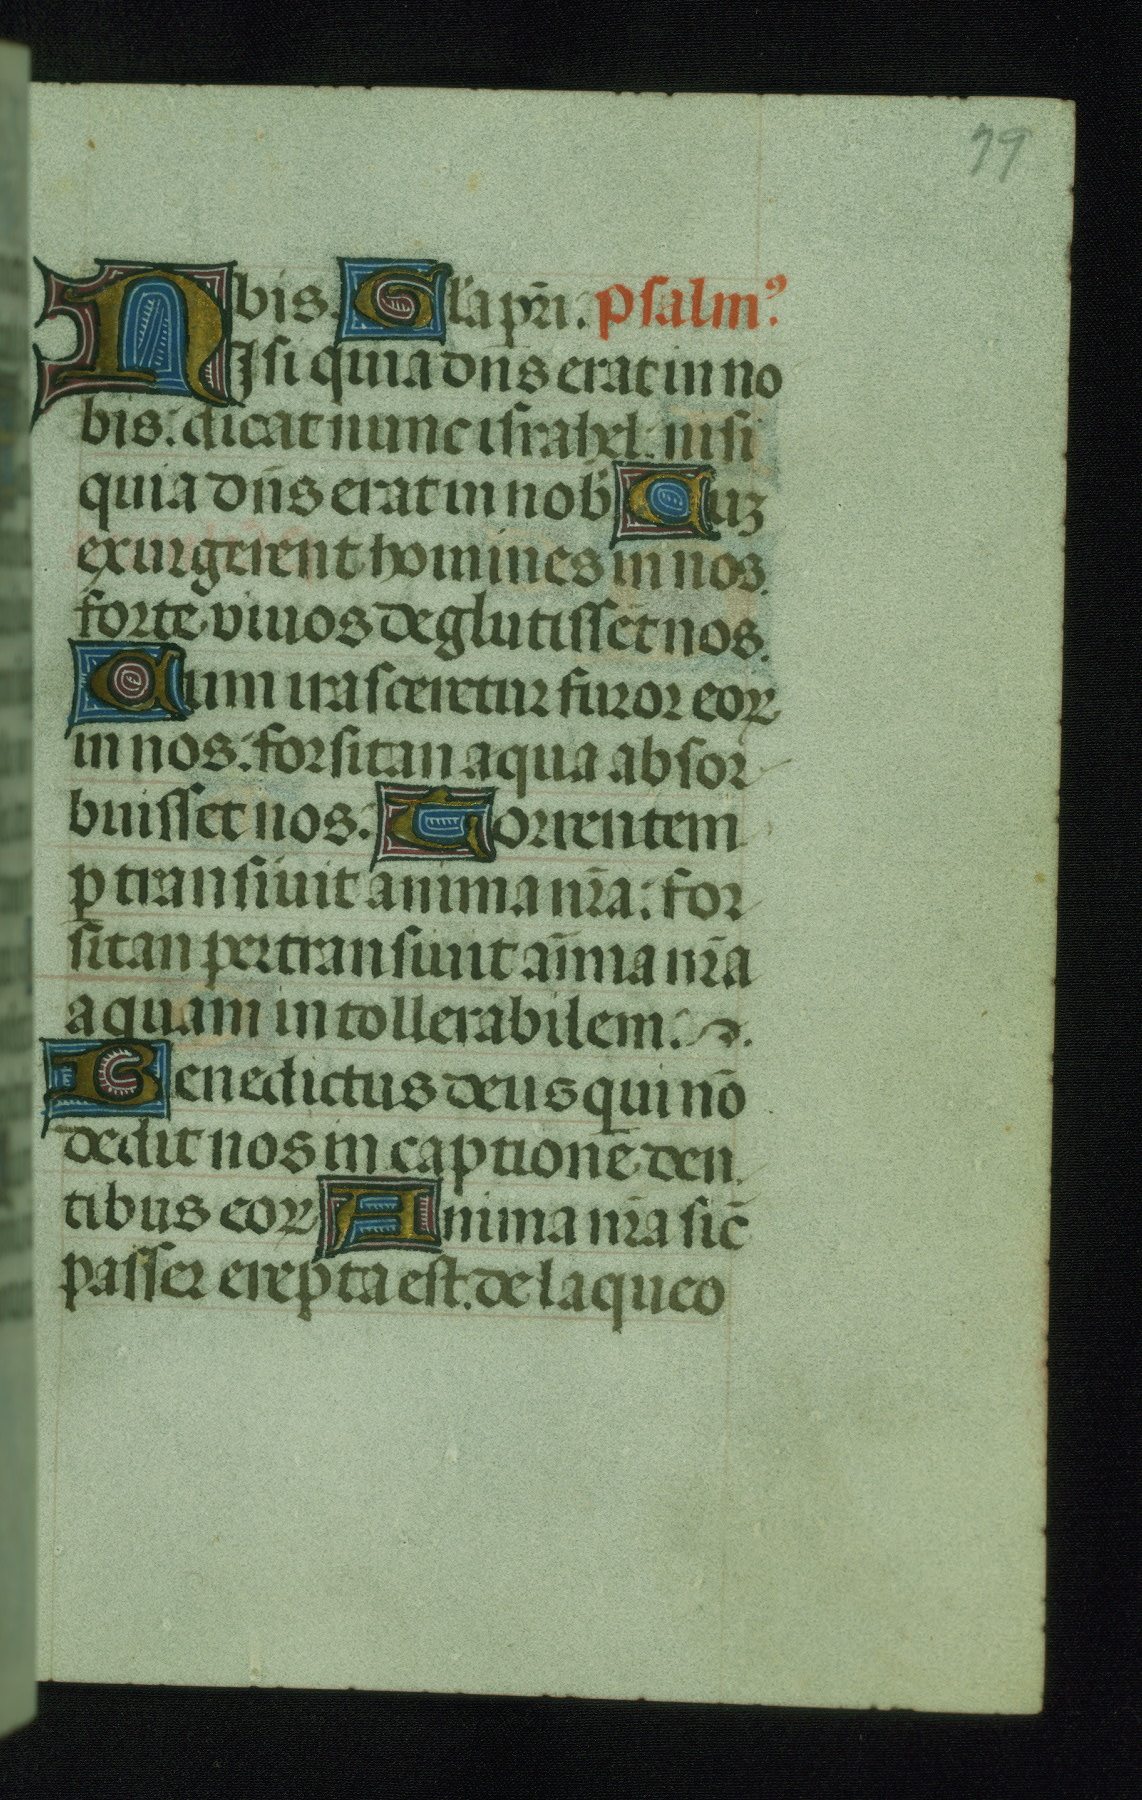 79
bis. Gl'a pr̄i. Psalmꝰ
NIsi quia dn̄s erat in no
bis: dicat nunc israhel. nisi
quia dn̄s erat in nob̄ Cuʒ
exurgerent homines in nos.
forte viuos deglutissēt nos.
Cum irasceretur furor eoꝝ
in nos: forsitan aqua absor
buisset nos. Torrentem
ꝑtransiuit anima nr̄a: for
sitan pertransiuit aīma nr̄a
aquam intollerabilem.
Benedictus deus qui nō
dedit nos in captione den
tibus eoꝝ Anima nr̄a sic̄
passer erepta est. de laqueo